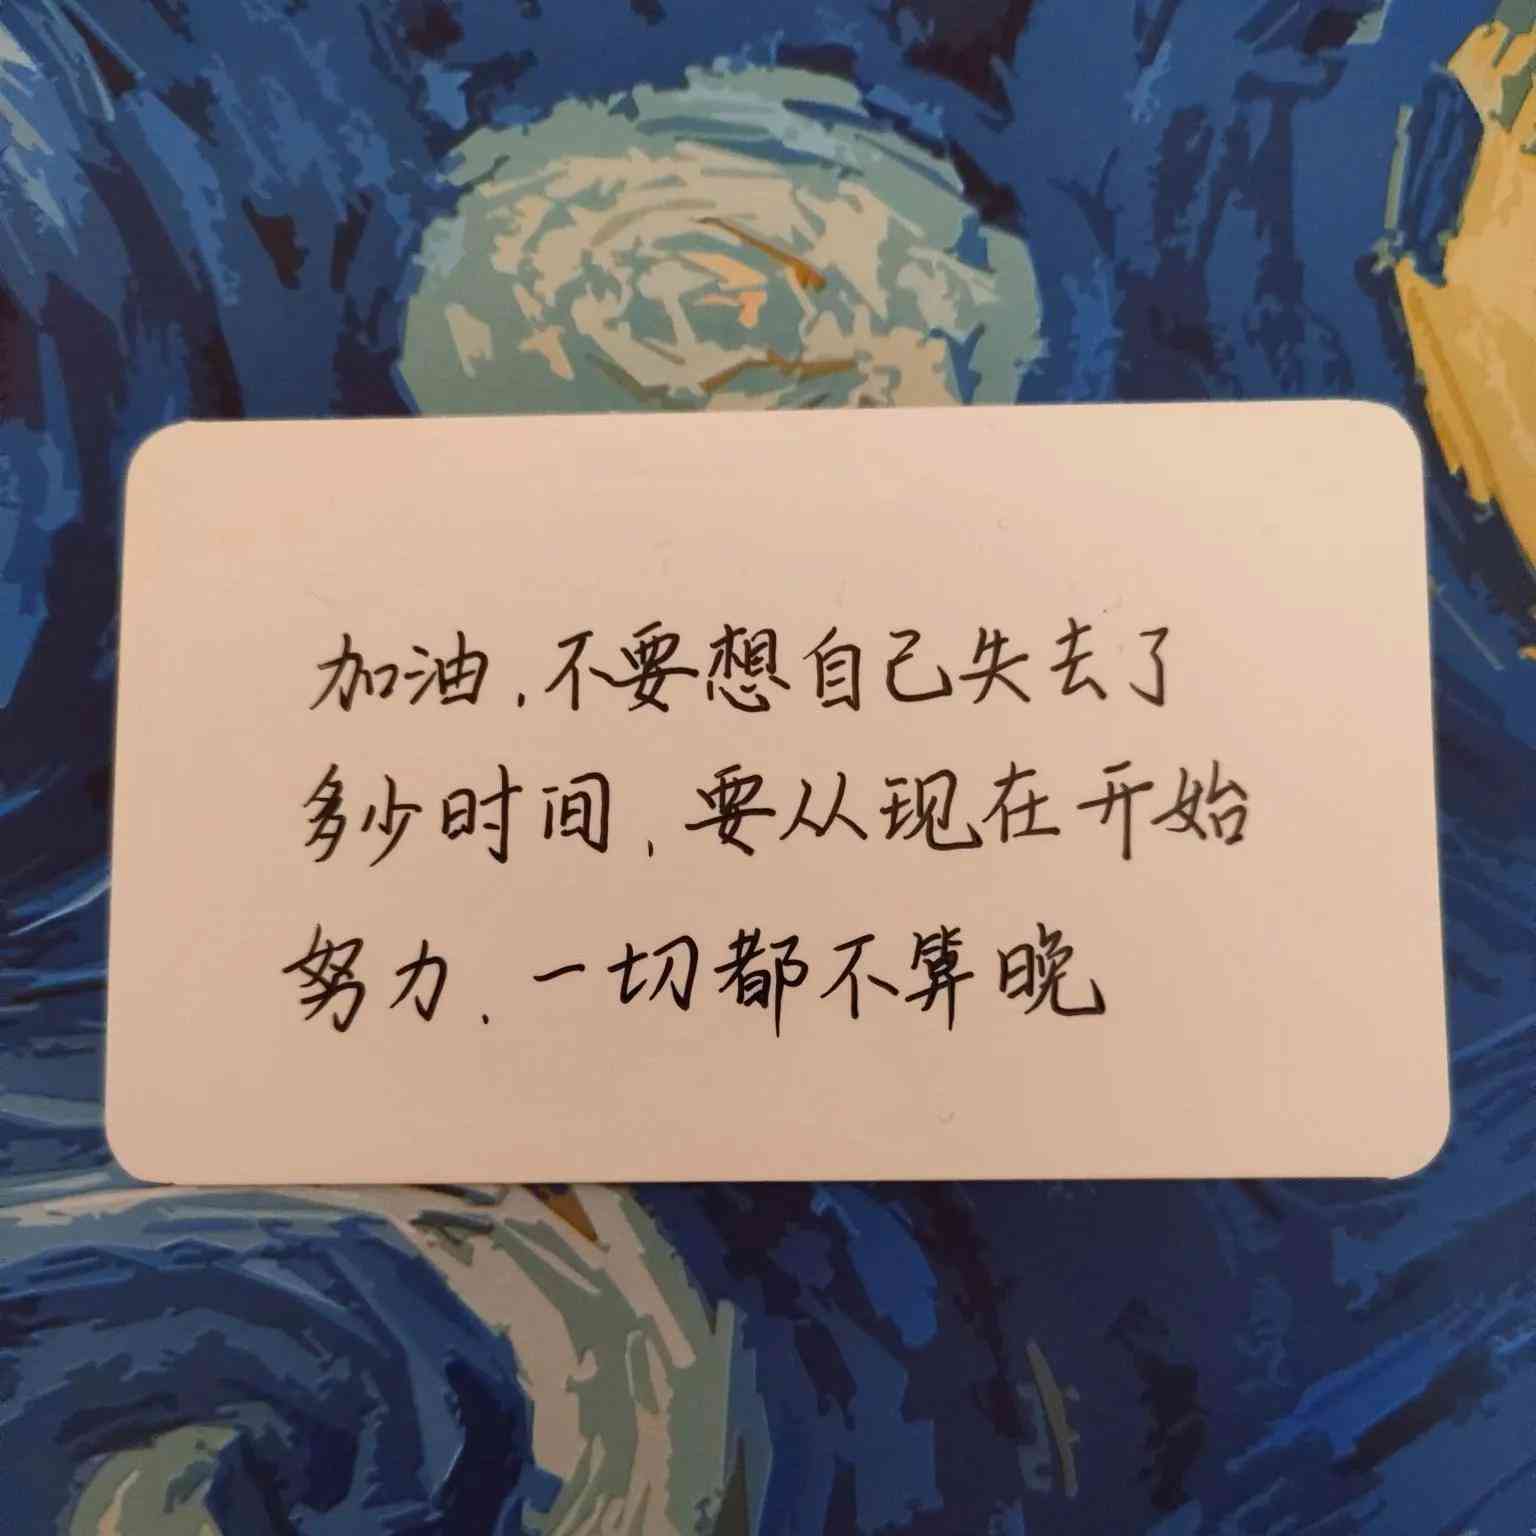 加油，不要想自己失去了
多少时间，要从现在开始
努力，一切都不算晚